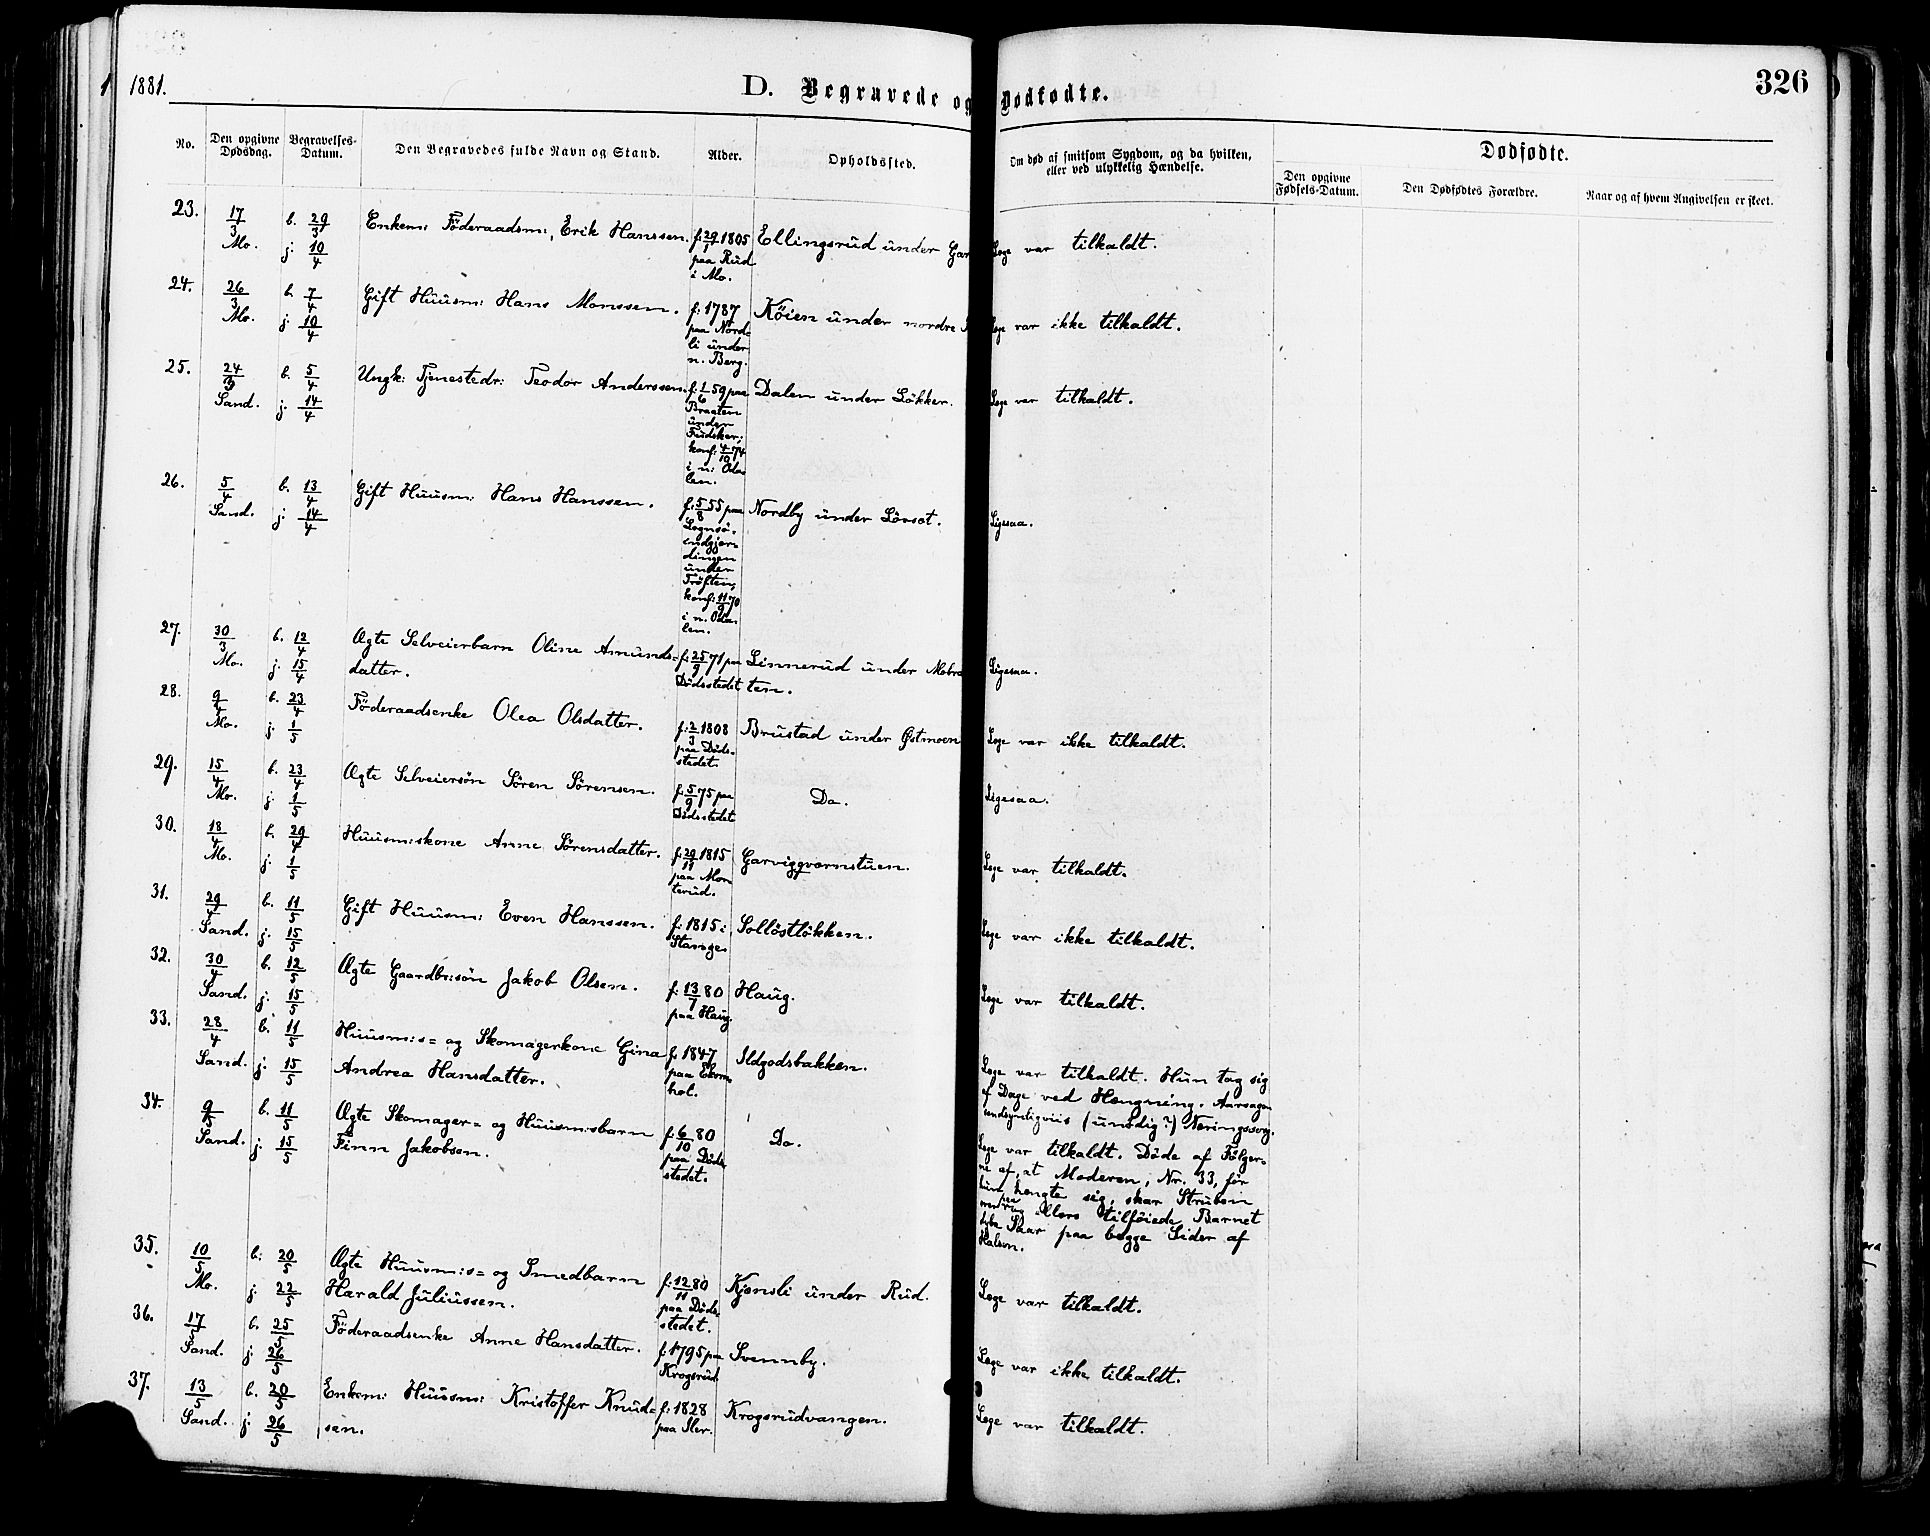 1881.
D. Begravede og Dødfødte.
326
No.
Den opgivne Dødsdag.
Begravelses-Datum.
Den Begravedes fulde Navn og Stand.
Alder.
Opholdssted.
Om død af smitsom Sygdom, og da hvilken,
eller ved ulykkelig Hændelse.
Dødfødte.
Den opgivne Fødsels-Datum.
Den Dødfødtes Forældre.
Naar og af hvem Angivelsen er skeet.
23. 17/3 b. 29/3 Enkem: Föderaadsm:, Erik Hanssen. f: 29/1 1805 Ellingsrud under Læge var tilkaldt.
Mo. j: 10/4 paa Rud
i Mo.
24. 26/3 b. 7/4 Gift Huusm: Hans Monssen. f: 1787 Köien under nordre Læge var ikke tilkaldt.
Mo. j: 10/4 paa Nord-
li under
n. Berg.
25. 24/3 b. 5/4 Ungk: Tjenestedr: Teodor Anderssen. f: 1/6 59 paa Dalen under Lökker. Læge var tilkaldt.
Sand. j. 14/4 Braaten
under
konf: 4/10 74
i n: Oda-
len.
26. 5/4 b. 13/4 Gift Huusm: Hans Hanssen. f: 5/8 55 paa Nordby under Lörset. Ligesaa.
Sand. j: 14/4
under
Tröften,
konf: 11/9 70
i n. Oda-
len.
27. 30/3 b. 12/4 Ægte Selveierbarn Oline Amunds= f: 25/9 71 paa Linnerud under Mobra Ligesaa.
Mo. j: 15/4 datter. Dödsstedet ten.
28. 9/4 b. 23/4 Föderaadsenke Olea Olsdatter. f: 2/3 1808 Brustad under Østmoen Læge var ikke tilkaldt.
Mo. j. 1/5 paa Döds-
stedet.
29. 15/4 b. 23/4 Ægte Selveiersön Sören Sörensen. f: 5/9 75 paa Do. Ligesaa.
Mo. j. 1/5 Dödsstedet
30. 18/4 b. 29/4 Huusm:skone Anne Sörensdatter. f: 29/11 1815 Garviggvarnstuen. Læge var tilkaldt.
Mo. j: 1/5 paa Mon
terud.
31. 29/4 b. 11/5 Gift Huusm: Even Hanssen. f: 1815 i Sollöstlökken. Læge var ikke tilkaldt.
Sand. j. 15/5 Stange.
32. 30/4 b. 12/5 Ægte Gaardbr:sön Jakob Olsen. f: 13/7 80 Haug. Læge var tilkaldt.
Sand. j. 15/5 paa Haug.
33. 28/4 b. 11/5 Huusm:s= og Skomagerkone Gina f. 1847 Ildgodsbakken. Læge var tilkaldt. Hun tog sig
Sand. j: 15/5 Andrea Hansdatter. paa Ekorn- af Dage ved Hængning. Aarsagen
hol. sandsynligviis (unödig?) Næringssorg.
34. 9/5 b. 11/5 Ægte Skomager= og Huusm:sbarn f: 6/10 80 Do. Læge var tilkaldt. Döde af Fölger-
Sand. j: 15/5 Finn Jakobsen. paa Döds- ne af, at Moderen, Nr. 33, för
stedet. hun hængte sig, skar Struben
paa ellers tilföiede Barnet
Saar paa begge Sider af
Halsen.
35. 10/5 b: 20/5 Ægte Huusm:s= og Smedbarn f: 12/11 80 Kjonsli under Rud. Læge var tilkaldt.
Mo. j: 22/5 Harald Juliussen. paa Döds-
stedet.
36. 17/5 b. 25/5 Föderaadsenke Anne Hansdatter. f. 1795 paa Svennby. Læge var ikke tilkaldt.
Sand. j: 26/5 Krogsrud.
37. 13/5 b. 20/5 Enkem: Huusm: Kristoffer Knud= f: 1828 Krogsrudvangen. Læge var tilkaldt.
Sand. j. 26/5 sen. paa Sler.